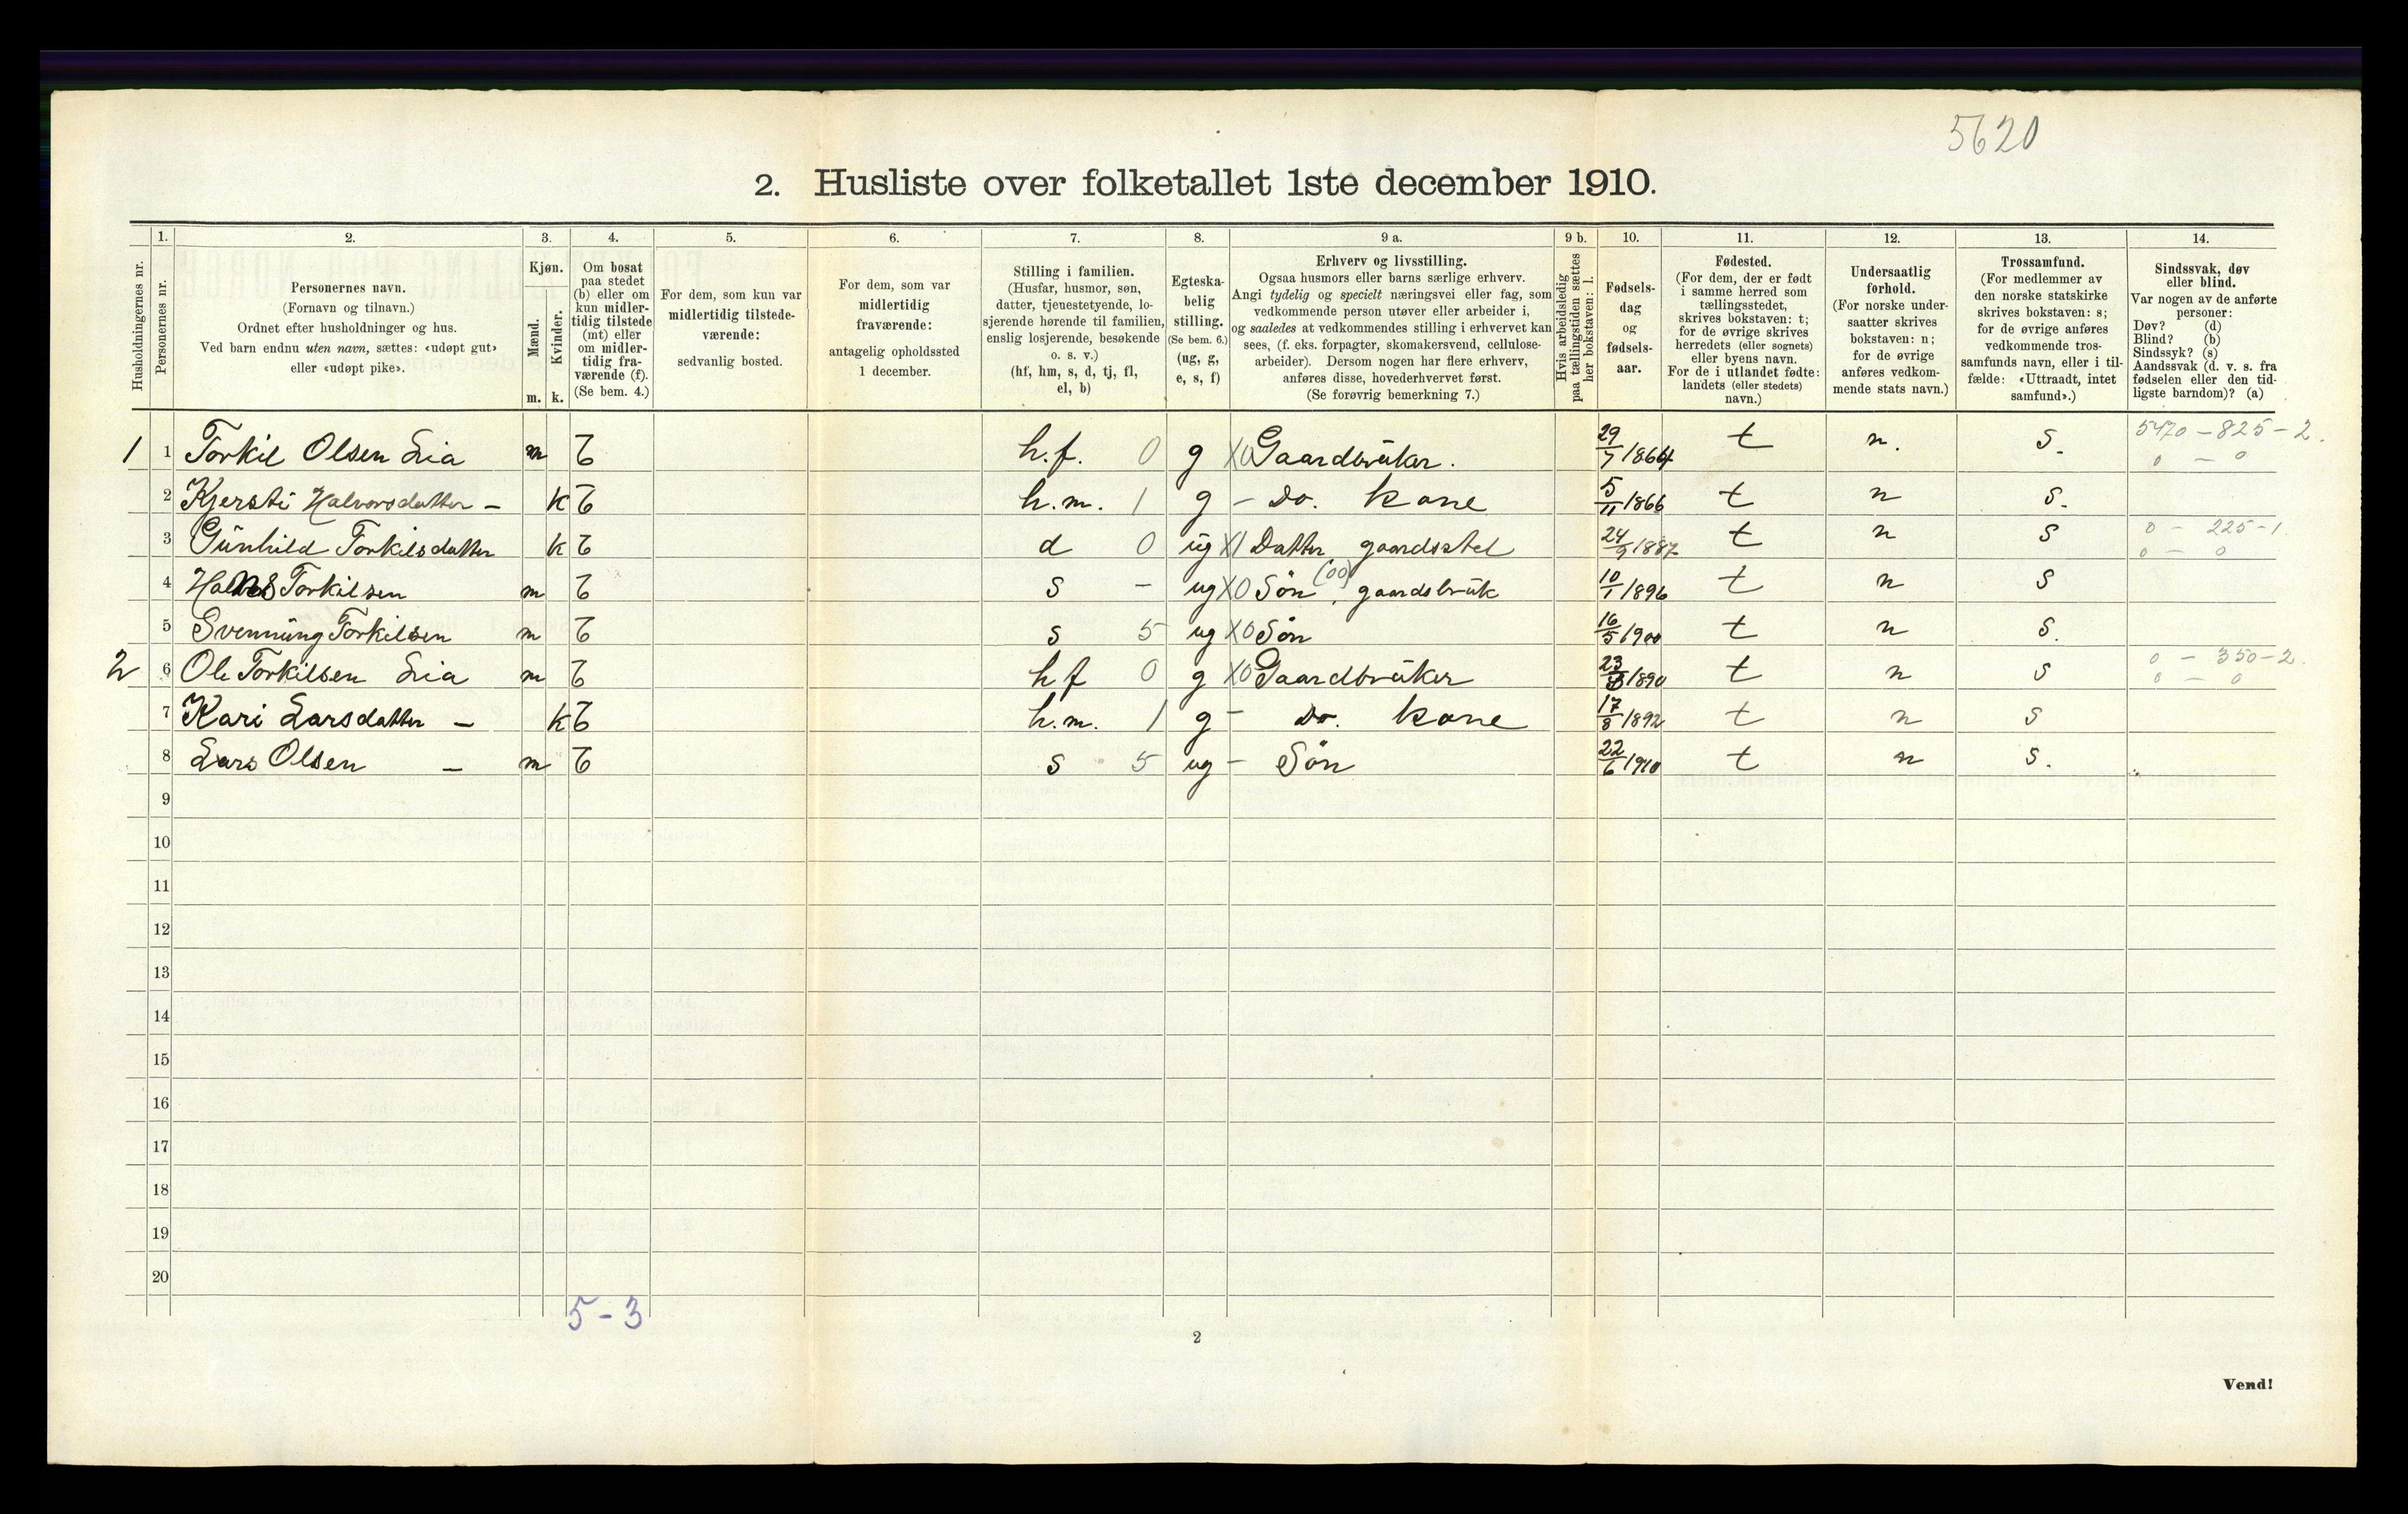 5620
2. Husliste over folketallet 1ste december 1910.
1. 2. 3. 4. 5. 6. 7. 8. 9 a. 9 b. 10. 11. 12. 13. 14.
Husholdningernes nr.
Personernes nr.
Personernes navn.
(Fornavn og tilnavn.)
Ordnet efter husholdninger og hus.
Ved barn endnu uten navn, sættes: «udøpt gut»
eller «udøpt pike».
Kjøn.
Mænd.
Kvinder.
m. k.
Om bosat
paa stedet
(b) eller om
kun midler-
tidig tilstede
(mt) eller
om midler-
tidig fra-
værende (f).
(Se bem. 4.)
For dem, som kun var
midlertidig tilstede-
værende:
sedvanlig bosted.
For dem, som var
midlertidig
fraværende:
antagelig opholdssted
1 december.
Stilling i familien.
(Husfar, husmor, søn,
datter, tjenestetyende, lo-
sjerende hørende til familien,
enslig losjerende, besøkende
o. s. v.)
(hf, hm, s, d, tj, fl,
el, b)
Egteska-
belig
stilling.
(Se bem. 6.)
(ug, g,
e, s, f)
Erhverv og livsstilling.
Ogsaa husmors eller barns særlige erhverv.
Angi tydelig og specielt næringsvei eller fag, som
vedkommende person utøver eller arbeider i,
og saaledes at vedkommendes stilling i erhvervet kan
sees, (f. eks. forpagter, skomakersvend, cellulose-
arbeider). Dersom nogen har flere erhverv,
anføres disse, hovederhvervet først.
(Se forøvrig bemerkning 7.)
Hvis arbeidsledig
paa tællingstiden sættes
her bokstaven: l.
Fødsels-
dag
og
fødsels-
aar.
Fødested.
(For dem, der er født
i samme herred som
tællingsstedet,
skrives bokstaven: t;
for de øvrige skrives
herredets (eller sognets)
eller byens navn.
For de i utlandet fødte:
landets (eller stedets)
navn.)
Undersaatlig
forhold.
(For norske under-
saatter skrives
bokstaven: n;
for de øvrige
anføres vedkom-
mende stats navn.)
Trossamfund.
(For medlemmer av
den norske statskirke
skrives bokstaven: s;
for de øvrige anføres
vedkommende tros-
samfunds navn, eller i til-
fælde: «Uttraadt, intet
samfund».)
Sindssvak, døv
eller blind.
Var nogen av de anførte
personer:
Døv? (d)
Blind? (b)
Sindssyk? (s)
Aandssvak (d. v. s. fra
fødselen eller den tid-
ligste barndom)? (a)
1 1 Torkil Olsen Lia m b h.f. 0 g X0 Gaardbrüker. 29/7 1864 t n. s. 5470 - 825 - 2.
0 - 0
2 Kjersti Halvorsdatter - k b h.m. 1 g - Do. kone 5/11 1866 t n s.
3 Günhild Torkilsdatter k b d 0 ug X1 Datter, gaardsstel 24/9 1887 t n s 0 - 225 - 1.
0 - 0
4 Torkilsen m b s - ug X0 Søn (00), gaardsbrük 10/1 1896 t n s
5 Svennüng Torkilsen m b s 5 ug X0 Søn 16/5 1900 t n s.
2 6 Ole Torkilsen Lia m b hf 0 g X0 Gaardbrüker 23/ 1890 t n s 0 - 350 - 2.
0 - 0
7 Kari Larsdatter - k b h.m. 1 g - Do. kone 17/8 1892 t n s
8 Lars Olsen - m b s 5 ug - Søn 22/6 1910 t n s.
9
10
11
12
13
14
15
16
17
18
19
20
5 - 3
2
Vend!